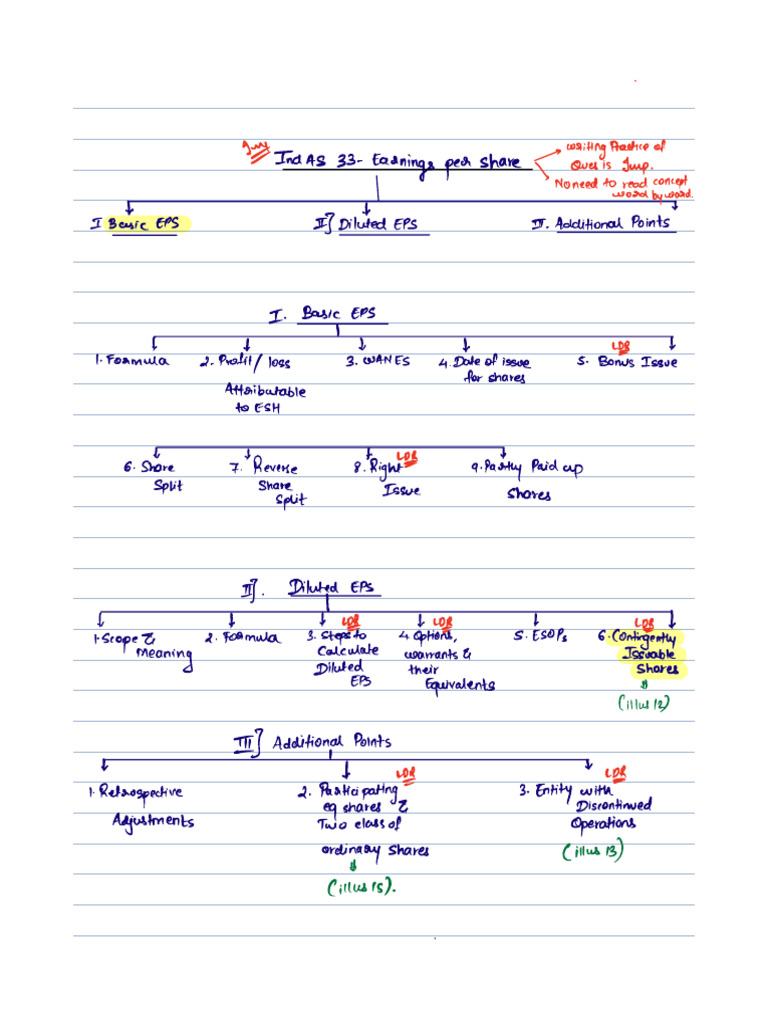 Imp
Ind AS 33- Earnings per share
writing Practice of
Ques is Imp.
No need to read concept
word by word.
I Basic EPS
II] Diluted EPS
III. Additional Points
I. Basic EPS
1. Formula
2. Profit/loss
Attributable
to ESH
3. WANES
4. Date of issue
for shares
LDR
5. Bonus Issue
6. Share
Split
7. Reverse
Share
Split
LDR
8. Right
Issue
9. Partly Paid up
shares
II]. Diluted EPS
1. Scope &
Meaning
2. Formula
LDR
3. Steps to
Calculate
Diluted
EPS
LDR
4. Options,
warrants &
their
Equivalents
5. ESOPs
LDR
6. Contingently
Issuable
Shares
(illus 12)
III] Additional Points
1. Retrospective
Adjustments
LDR
2. Participating
eq shares &
Two class of
ordinary shares
(illus 15).
LDR
3. Entity with
Discontinued
Operations
(illus 13)